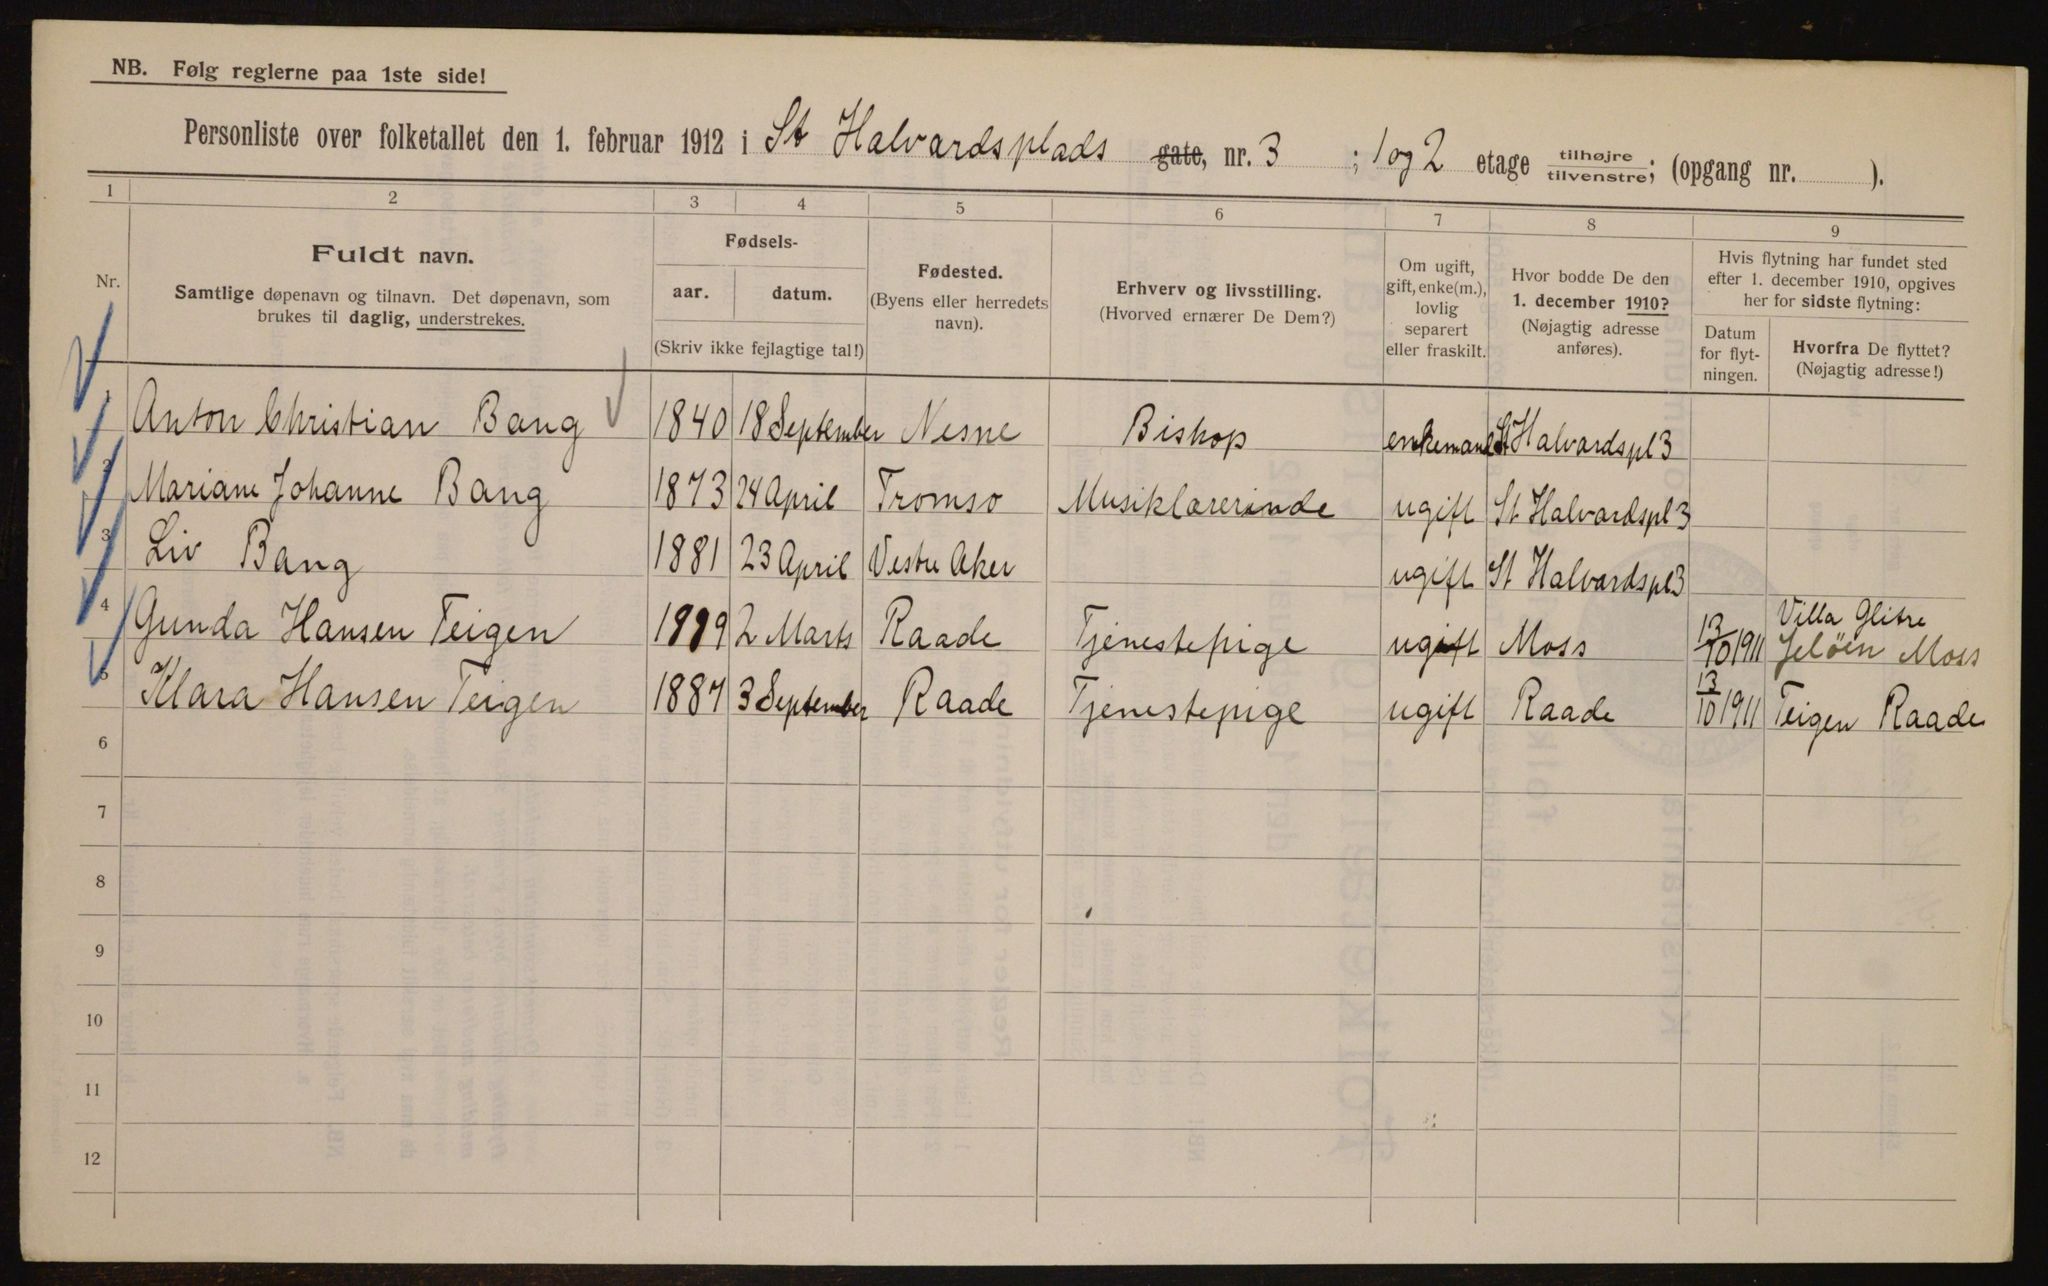 NB. Følg reglerne paa 1ste side!
Personliste over folketallet den 1. februar 1912 i St Halvardsplads gate, nr. 3 ; 1 og 2 etage tilhøjre tilvenstre; (opgang nr. ).
1 2 3 4 5 6 7 8 9
Nr.
Fuldt navn.
Samtlige døpenavn og tilnavn. Det døpenavn, som
brukes til daglig, understrekes.
Fødsels-
aar. datum.
(Skriv ikke fejlagtige tal!)
Fødested.
(Byens eller herredets
navn).
Erhverv og livsstilling.
(Hvorved ernærer De Dem?)
Om ugift,
gift, enke(m.),
lovlig
separert
eller fraskilt.
Hvor bodde De den
1. december 1910?
(Nøjagtig adresse
anføres).
Hvis flytning har fundet sted
efter 1. december 1910, opgives
her for sidste flytning:
Datum
for flyt-
ningen.
Hvorfra De flyttet?
(Nøjagtig adresse!)
1 Anton Christian Bang 1840 18 September Nesne Biskop enkemand St Halvardspl 3
2 Mariane Johanne Bang 1873 24 April Tromsø Musiklærerinde ugift St Halvardspl 3
3 Liv Bang 1881 23 April Vestre Aker ugift St Halvardspl 3
4 Gunda Hansen Teigen 2 Marts Raade Tjenestepige ugift Moss 13/10 1911 Villa Glitre
Jeløen Moss
5 Klara Hansen Teigen 1887 3 September Raade Tjenestepige ugift Raade 13/10 1911 Teigen Raade
6
7
8
9
10
11
12